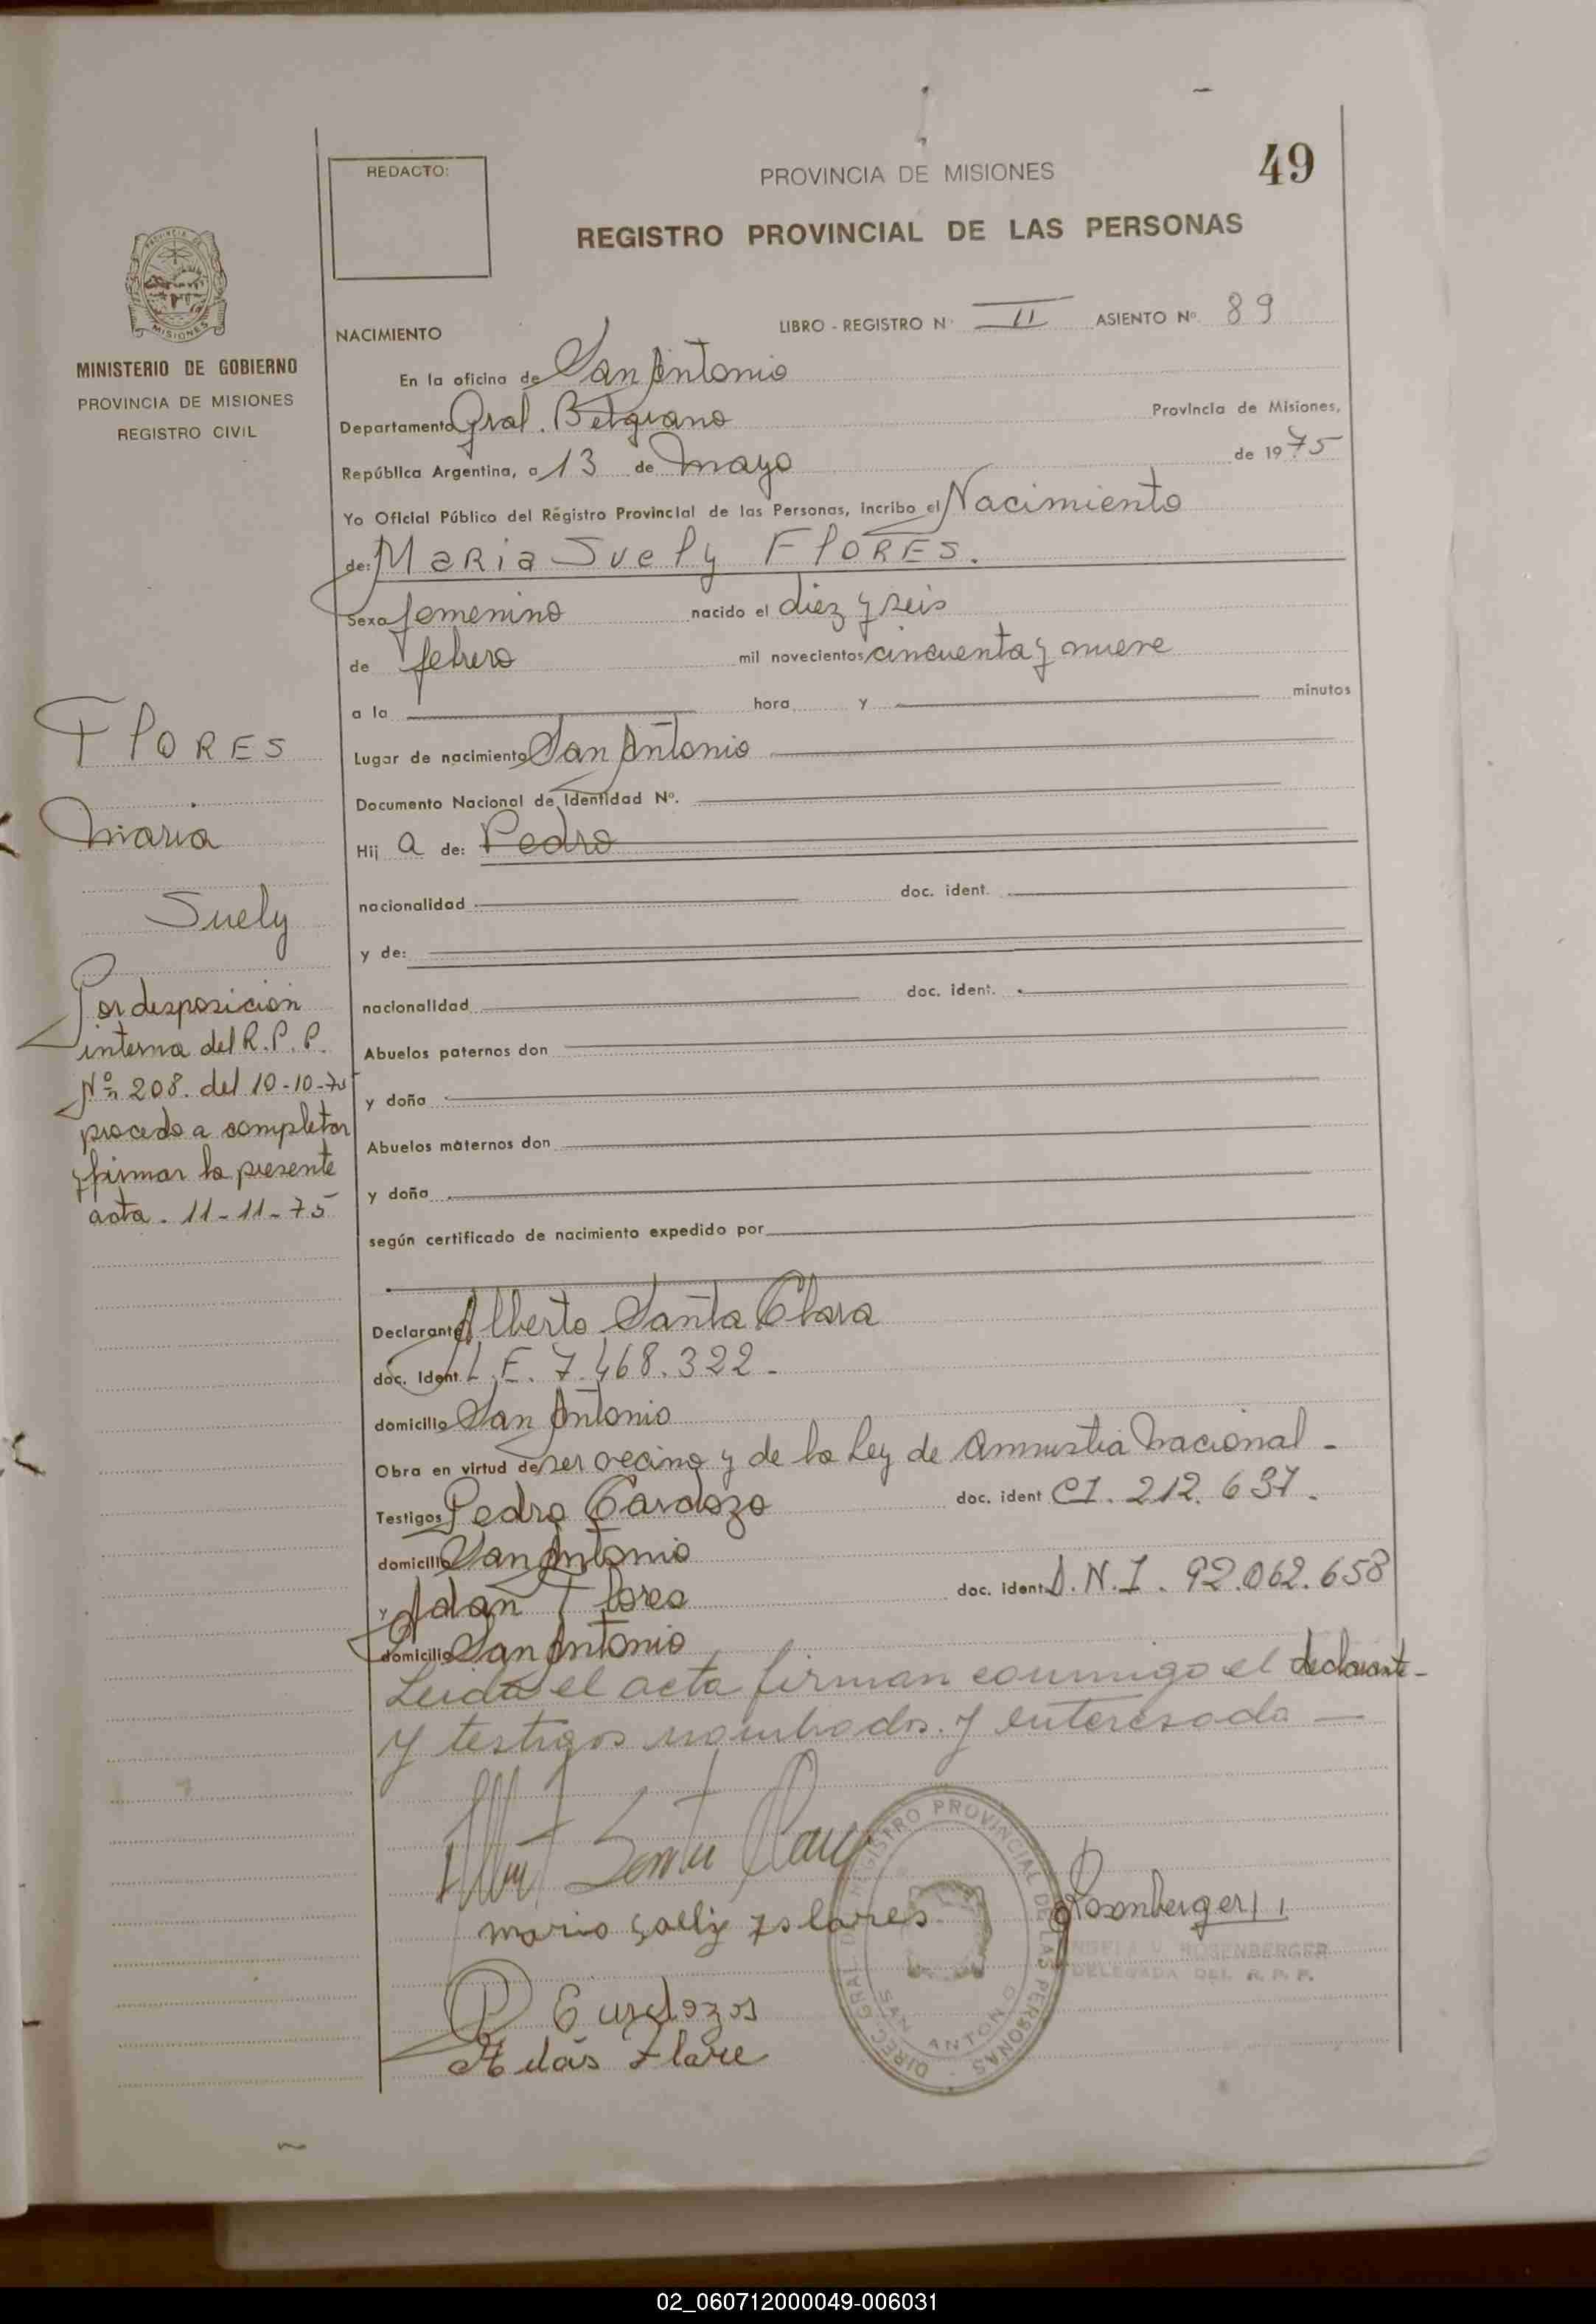 REDACTO:
PROVINCIA DE MISIONES
49
REGISTRO PROVINCIAL DE LAS PERSONAS
PROVINCIA DE MISIONES
MINISTERIO DE GOBIERNO
PROVINCIA DE MISIONES
REGISTRO CIVIL
NACIMIENTO
LIBRO - REGISTRO Nº II ASIENTO Nº 89
En la oficina de San Antonio
Departamento Gral. Belgrano Provincia de Misiones,
República Argentina, a 13 de Mayo de 1975
Yo Oficial Público del Registro Provincial de las Personas, incribo el Nacimiento
de: Maria Suely FLORES.
Sexo femenino nacido el diez y seis
de febrero mil novecientos cincuenta y nueve
a la hora y minutos
Lugar de nacimiento San Antonio
Documento Nacional de Identidad Nº.
Hij a de: Pedro
nacionalidad doc. ident.
y de:
nacionalidad doc. ident.
Abuelos paternos don
y doña
Abuelos maternos don
y doña
según certificado de nacimiento expedido por
Declarante Alberto Santa Clara
doc. Ident. L.E. 7.468.322-
domicilio San Antonio
Obra en virtud de ser vecino y de la Ley de Amnistia Nacional-
Testigos Pedro Cardozo doc. ident CI. 212.637.
domicilio San Antonio
y Adan Flores doc. ident D.N.I. 92.062.658
domicilio San Antonio
Leida el acta firman conmigo el declarante-
y testigos nombrados. y interesada —
FLORES
Maria
Suely
Por desposicion
interna del R.P.P.
Nº 208. del 10-10-75
procedo a completar
y firmar la presente
acta. 11-11-75
Albert Santa Clara
Rosenberger
ROSENBERGER
DELEGADA DEL R.P.P.
DIREC. GRAL. DEL REGISTRO PROVINCIAL DE LAS PERSONAS
SAN ANTONIO
02_060712000049-006031